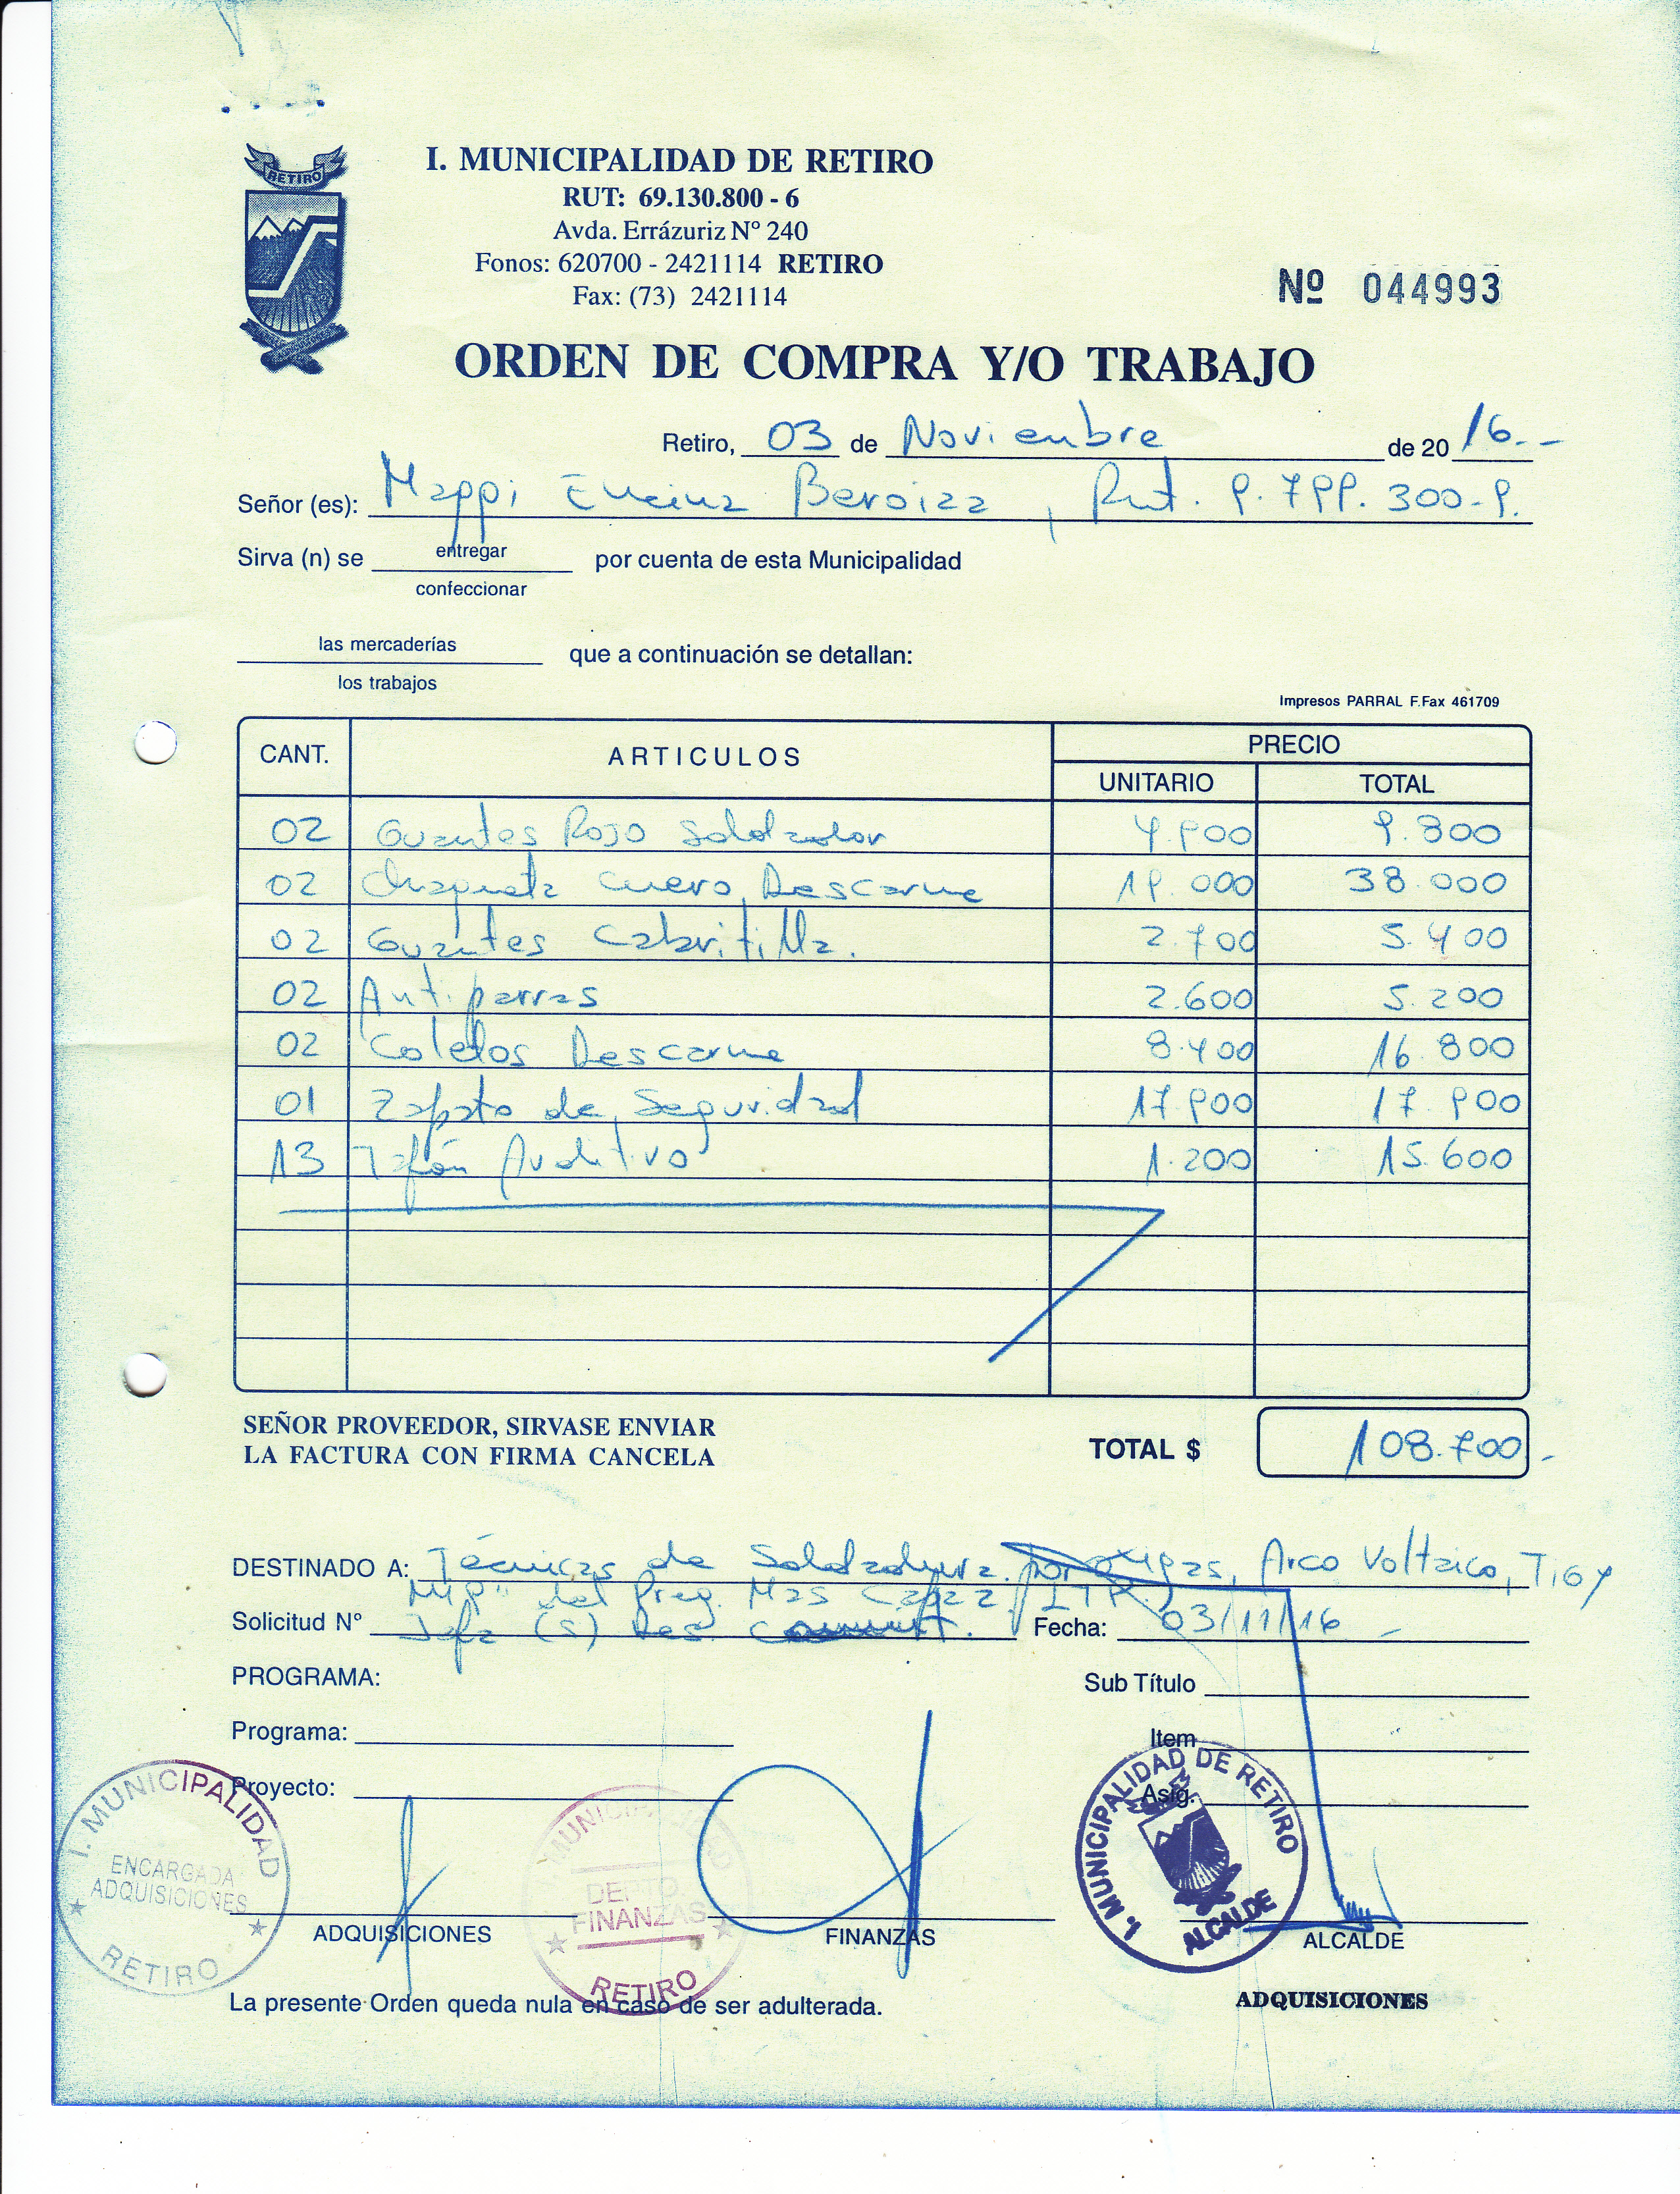 RETIRO
I. MUNICIPALIDAD DE RETIRO
RUT: 69.130.800 - 6
Avda. Errázuriz Nº 240
Fonos: 620700 - 2421114 RETIRO
Fax: (73) 2421114
Nº 044993
ORDEN DE COMPRA Y/O TRABAJO
Retiro, 03 de Noviembre de 20 16.-
Señor (es): Mappi Encina Beroiza, Rut. 9.799.300-9.
Sirva (n) se entregar por cuenta de esta Municipalidad
confeccionar
las mercaderías que a continuación se detallan:
los trabajos
Impresos PARRAL F.Fax 461709
CANT. ARTICULOS PRECIO
UNITARIO TOTAL
02 Guantes Rojo Soldador 4.900 9.800
02 Chaqueta Cuero Descarne 19.000 38.000
02 Guantes Cabritilla. 2.700 5.400
02 Antiparras 2.600 5.200
02 Coletos Descarne 8.400 16.800
01 Zapato de Seguridad 17.900 17.900
13 Tapón Auditivo 1.200 15.600
SEÑOR PROVEEDOR, SIRVASE ENVIAR
LA FACTURA CON FIRMA CANCELA
TOTAL $ 108.700.-
DESTINADO A: Técnicas de Soldadura por oxigas, Arco Voltaico, TIG y
MIG" del Prog. Mas Capaz
Solicitud Nº Jefa (S) Des. Fecha: 03/11/16.-
PROGRAMA: Sub Título
Programa: Item
Proyecto: Asig.
I. MUNICIPALIDAD
ENCARGADA
ADQUISICIONES
RETIRO
MUNICIPALIDAD
DEPTO.
FINANZAS
RETIRO
I. MUNICIPALIDAD DE RETIRO
ALCALDE
ADQUISICIONES FINANZAS ALCALDE
La presente Orden queda nula en caso de ser adulterada.
ADQUISICIONES